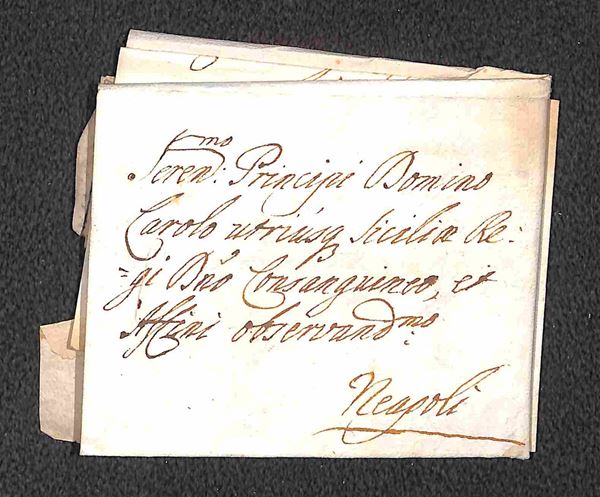 Seren.mo Principi Domino
Carolo utriusq Siciliæ Re:
=gi Dño Consanguineo, et
Affini observand.mo
Neapoli